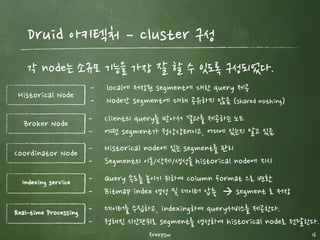 Druid 아키텍처 - cluster 구성
각 node는 소규모 기능을 가장 잘 할 수 있도록 구성되었다.
Historical Node
- local에 저장된 segment에 대한 query 제공
- Node간 segment에 대해 공유하지 않음 (shared nothing)
Broker Node
- client의 query를 받아서 결과를 제공하는 노드
- 어떤 segment가 정상상태이고, 어디에 있는지 알고 있음
Coordinator Node
- Historical node에 있는 segment를 관리
- Segment의 이동/삭제/생성을 historical node에 지시
Indexing service
- Query 속도를 높이기 위하여 column format 으로 변환
- Bitmap index 생성 및 데이터 압축 → segment 로 저장
Real-time Processing
- 데이터를 수집하고, indexing하여 query서비스를 제공한다.
- 정해진 시간단위로 segment를 생성하여 historical node로 전달한다.
freepsw
16